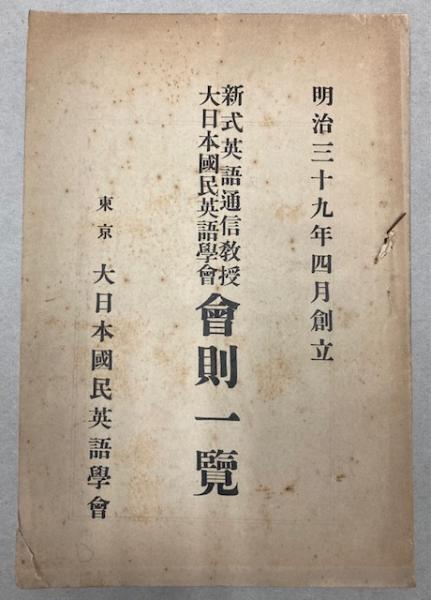 明治三十九年四月創立
新式英語通信教授
大日本國民英語學會
會則一覽
東京 大日本國民英語學會